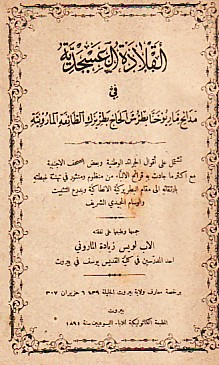 القلادة العسجدية
في
مدائح مار يوحنا بطرس الحاج بطريرك الطائفة المارونية
تشتمل على أقوال الجرائد الوطنية وبعض الصحف الاجنبية
مع اكثر ما جادت به قرائح الادباء من منظوم ومنثور في تهنئة غبطته
بارتقائه الى مقام البطريركية الانطاكية وبدرع التثبيت
والوسام المجيدي الشريف
جمعها وطبعها على نفقته
الاب لويس زيادة الماروني
احد المدرسين في كلية القديس يوسف في بيروت
برخصة معارف ولاية بيروت الجليلة ٦٣٩ حزيران ٣٠٧
بيروت
المطبعة الكاثوليكية للآباء اليسوعيين سنة ١٨٩١